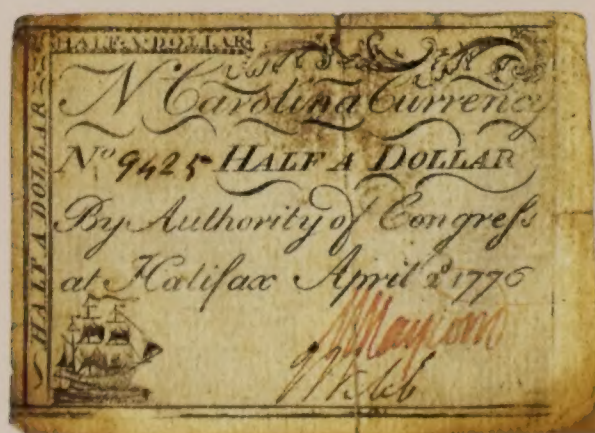 HALF-A-DOLLAR
HALF A DOLLAR
N. Carolina Currency
No. 9425 HALF A DOLLAR
By Authority of Congreſs
at Halifax April 2d. 1776
W Haywood
J Webb